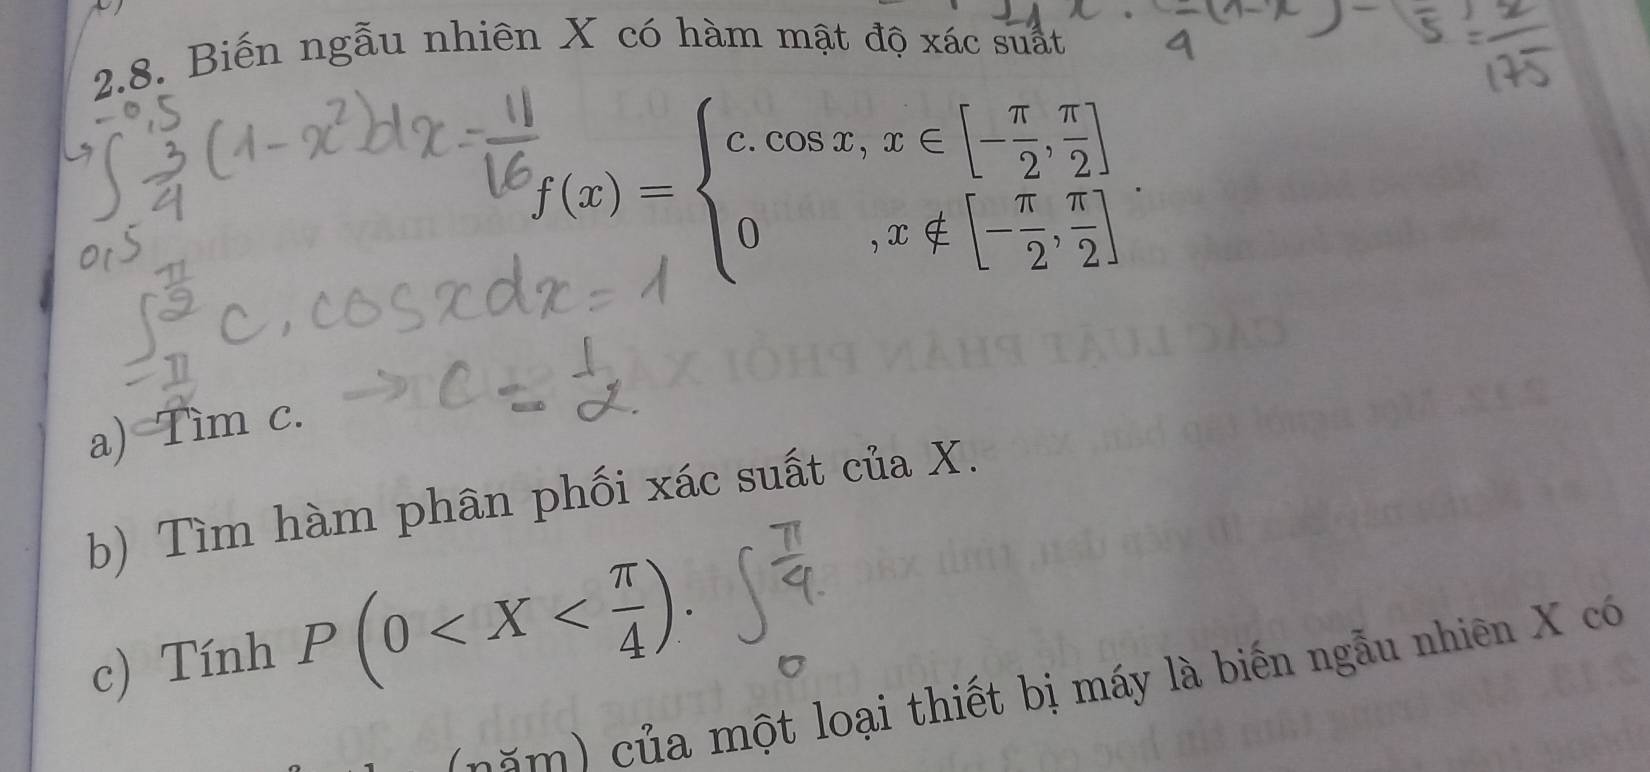 2.8. Biến ngẫu nhiên X có hàm mật độ xác suất
= 2/175
∫ 3/4 (1-x²)dx = 11/16
-0,5
0,5
f(x) = { c. cos x, x ∈ [-π/2, π/2]
0 , x ∉ [-π/2, π/2] .
∫ c. cosxdx = 1
π/2
-π/2
→ c = 1/2.
a) Tìm c.
b) Tìm hàm phân phối xác suất của X.
c) Tính P(0 < X < π/4). ∫ π/4 0
(năm) của một loại thiết bị máy là biến ngẫu nhiên X có